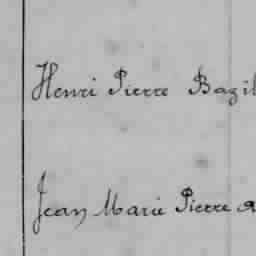 Henri Pierre Bazil
Jean Marie Pierre